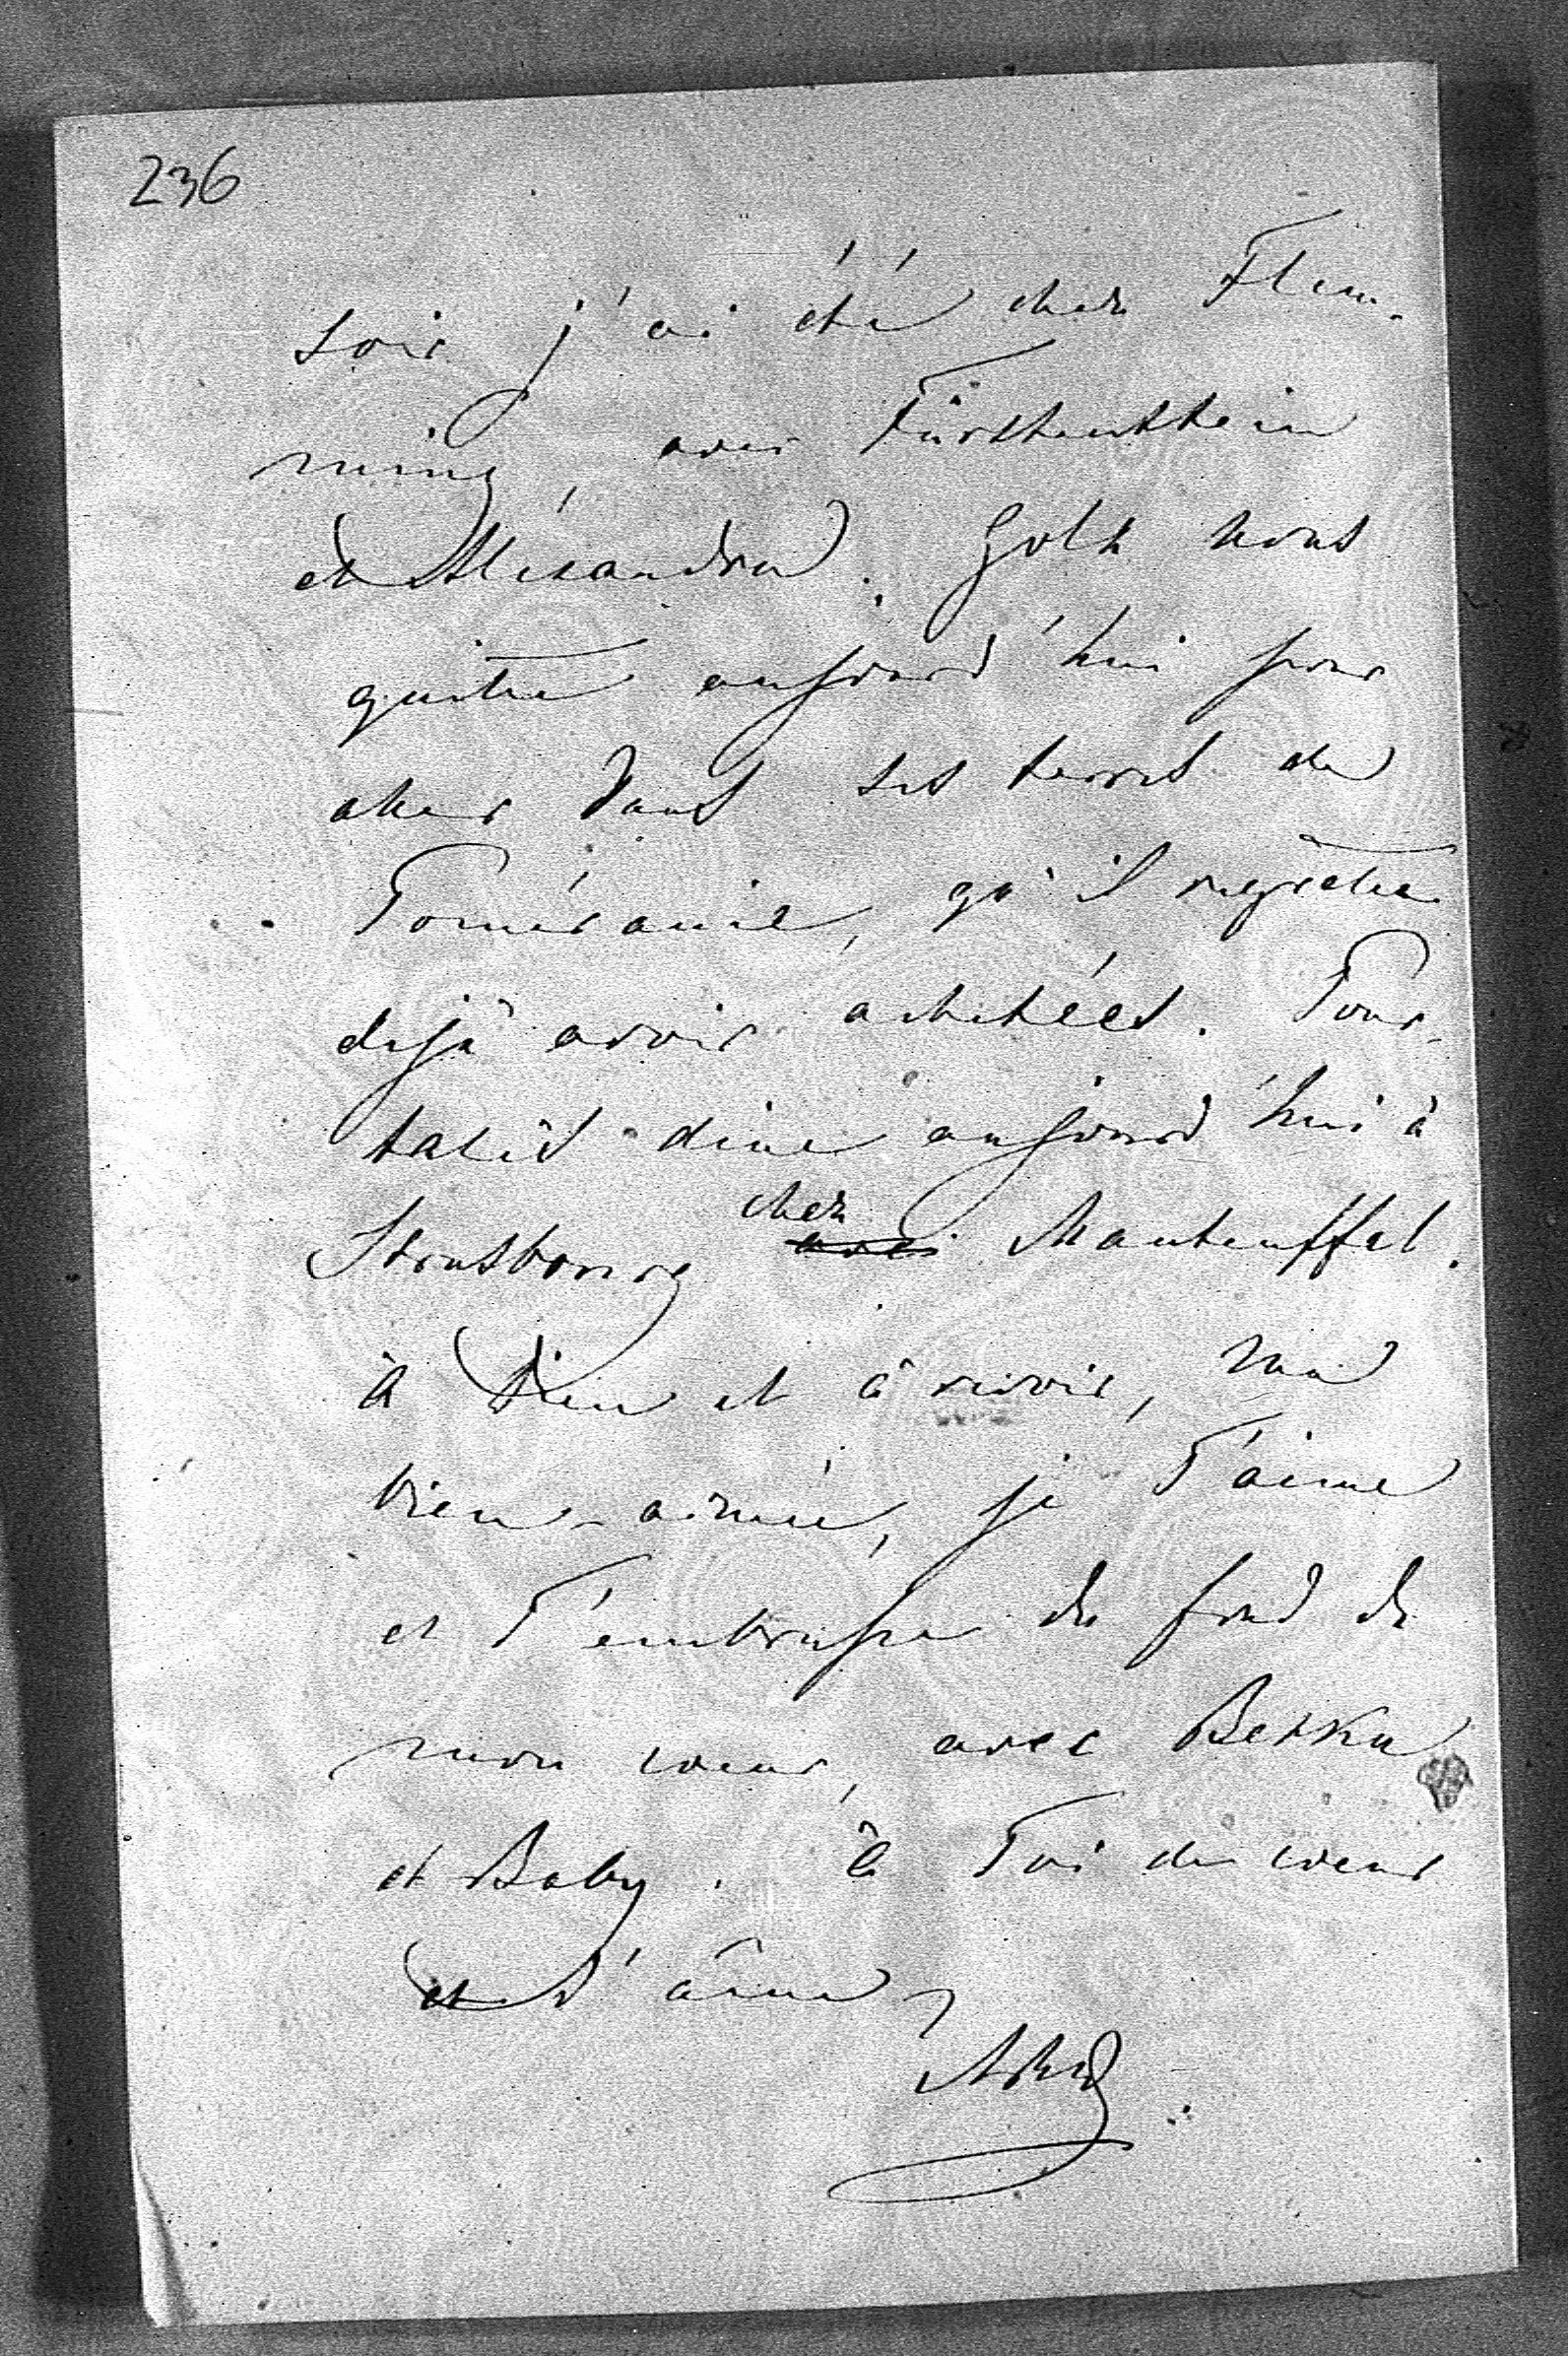 236
soir j'ai été chez Flem-
ming, avec Fürstenstein
et Alexandra. Goltz nous
quitte aujourd'hui pour
aller dans ses terres de
Poméranie, qu'il regrette
dejà avoir achetées. Pour-
talès dine aujourd'hui à
Strasbourg chez avec Manteuffel.
à Dieu et à revoir, ma
bien-aimée, je T'aime
et T'embrasse du fond de
mon coeur, avec Betka
et Baby. à Toi de coeur
et d'âme